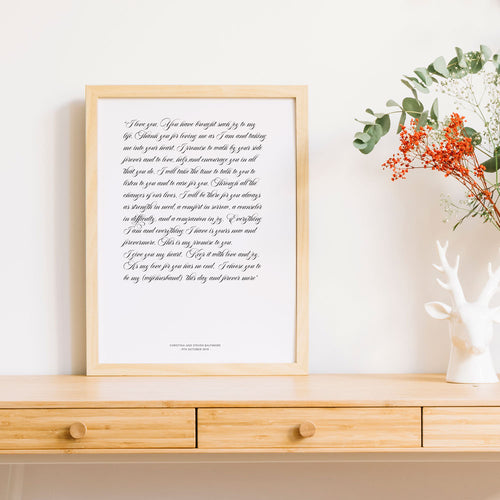 "I love you. You have brought such joy to my
life. Thank you for loving me as I am and taking
me into your heart. I promise to walk by your side
forever and to love, help and encourage you in all
that you do. I will take the time to talk to you to
listen to you and to care for you. Through all the
changes of our lives, I will be there for you always
as strength in need, a comfort in sorrow, a counselor
in difficulty, and a companion in joy. Everything
I am and everything I have is yours now and
forevermore. This is my promise to you.
I give you my heart. Keep it with love and joy.
As my love for you has no end. I choose you to
be my (wife/husband) this day and forever more"
CHRISTINA AND STEVEN BALTIMORE
9TH OCTOBER 2019